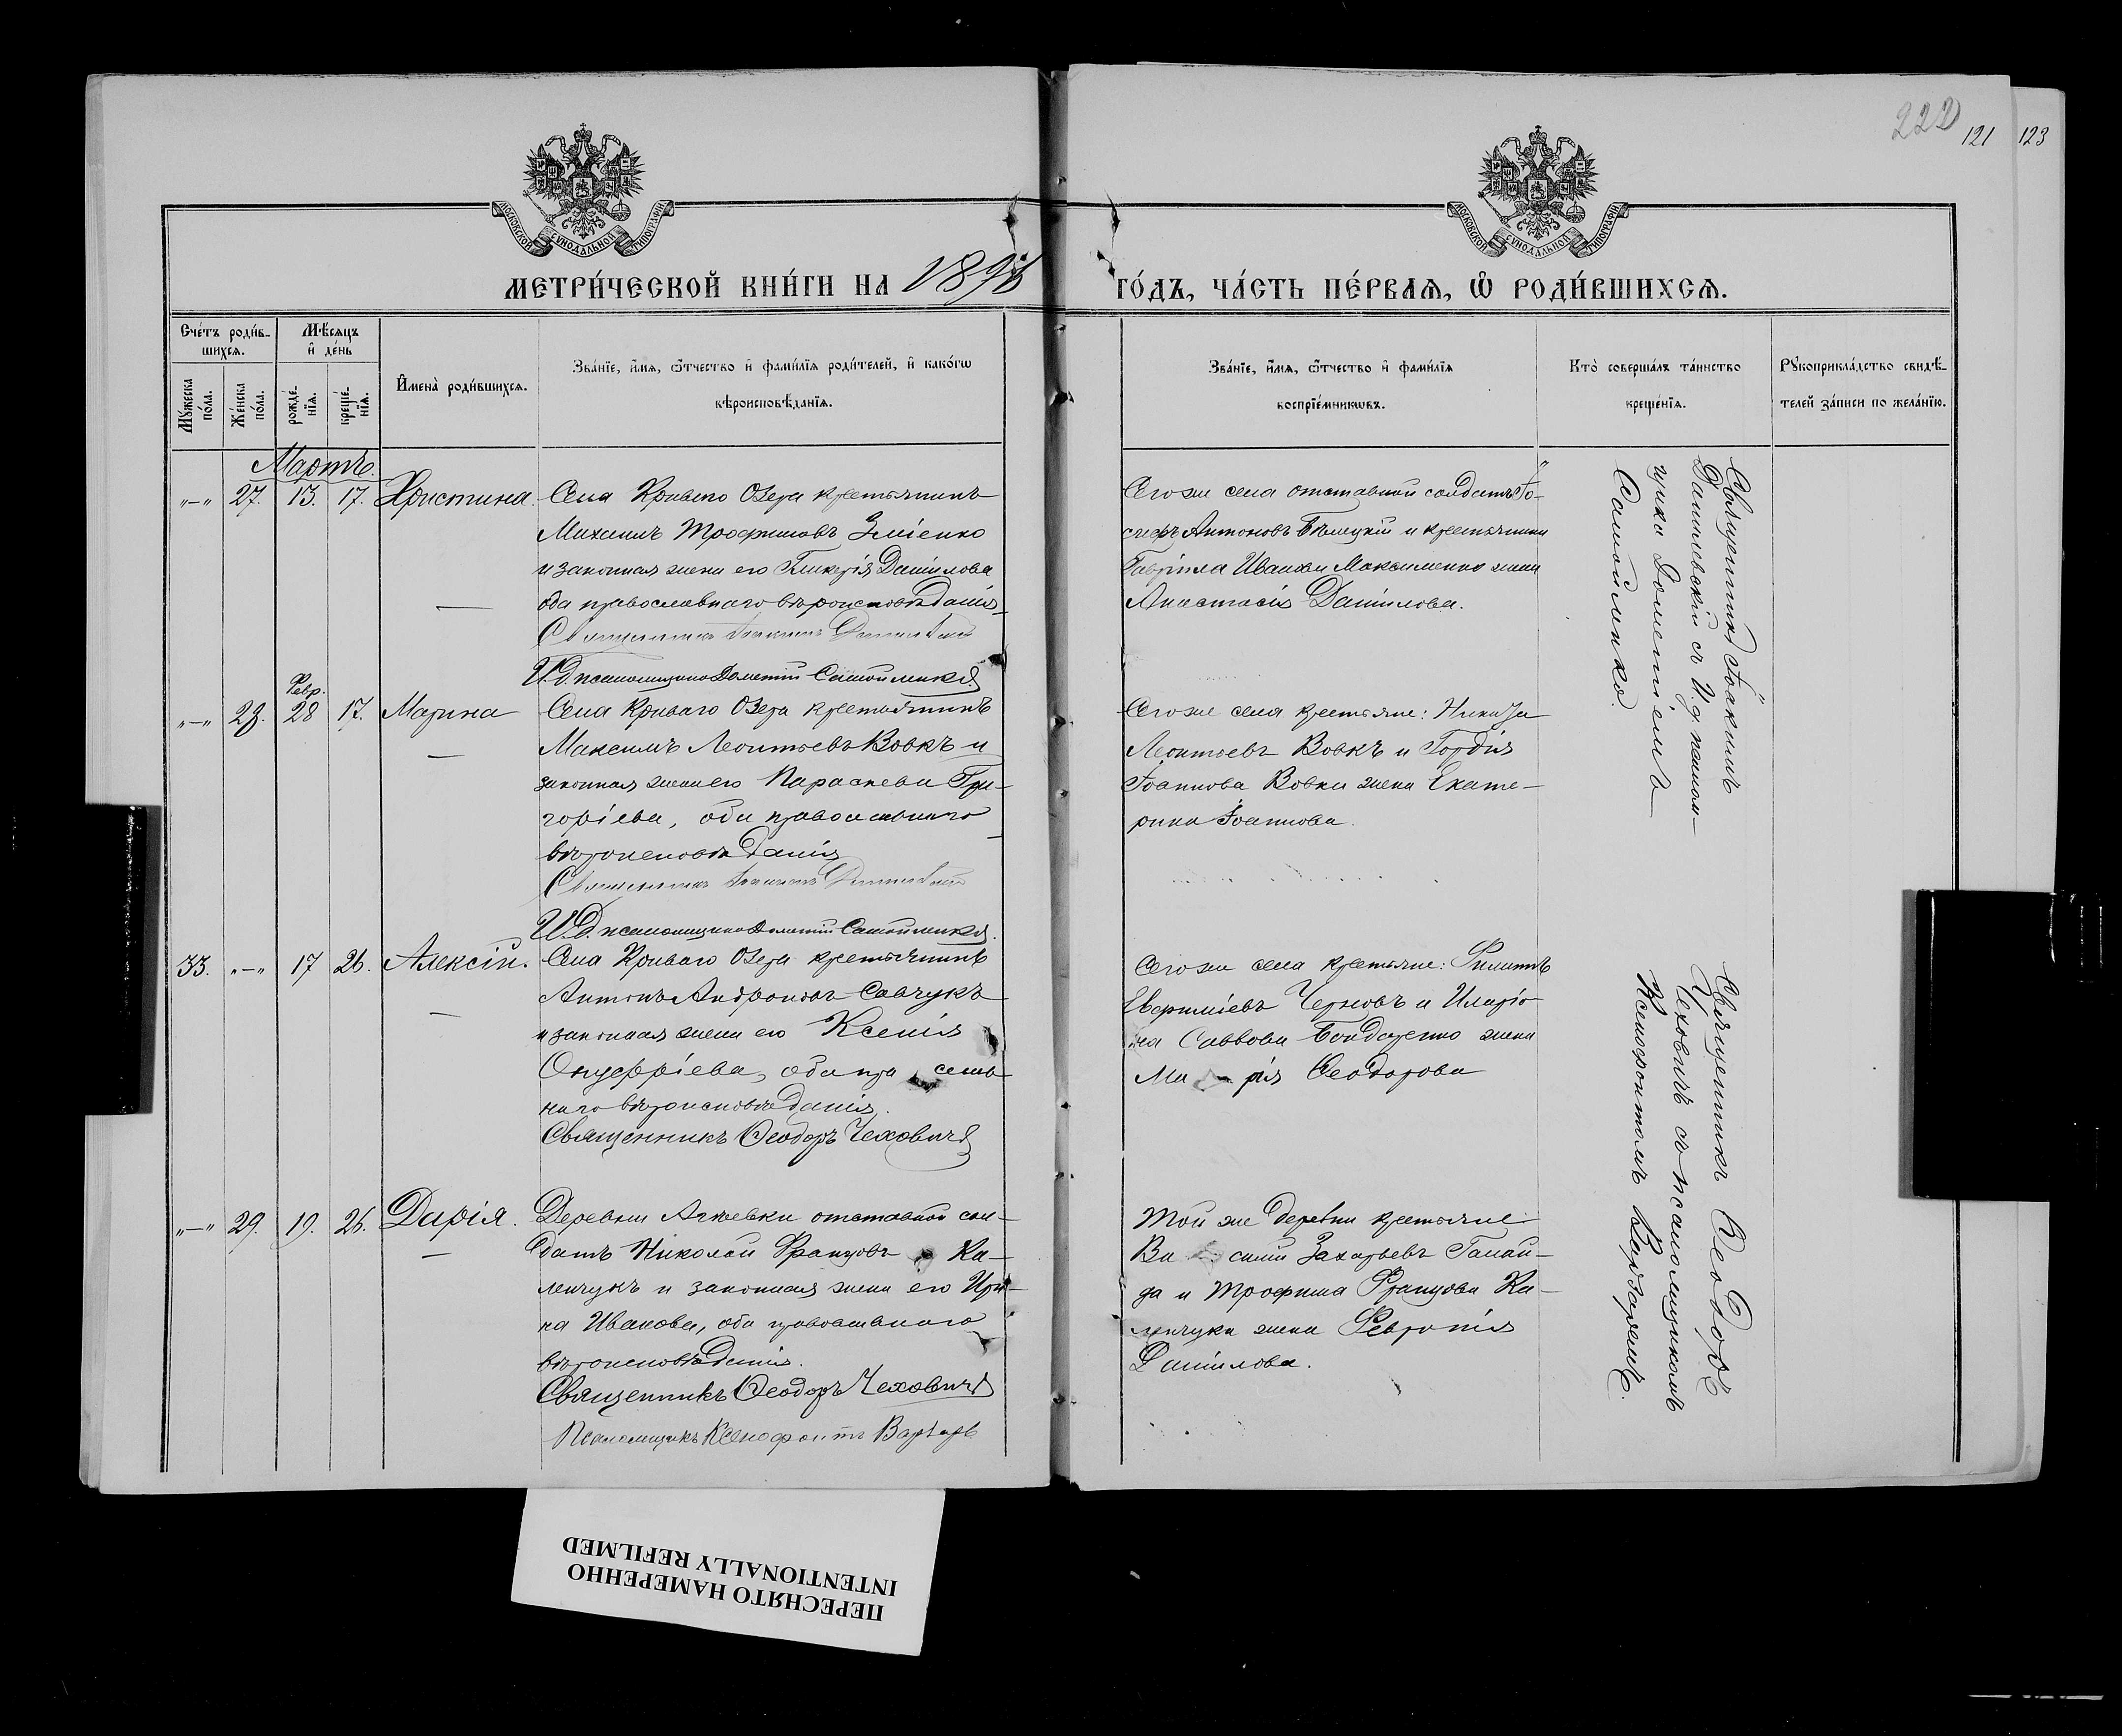 222
121
123
МОСКОВСКОЙ СѴНОДАЛЬНОЙ ТИПОГРАФІИ
МОСКОВСКОЙ СѴНОДАЛЬНОЙ ТИПОГРАФІИ
МЕТРИ́ЧЕСКОЙ КНИ́ГИ НА 1896
ГО́ДЪ, ЧА́СТЬ ПЕ́РВАѦ, Ѡ҆ РОДИ́ВШИХСѦ.
Сче́тъ роди́в-
шихсѧ.
Мѣ́сѧцъ
и҆ де́нь
Мꙋ́жеска по́ла.
Же́нска по́ла.
рожде́-
нїѧ.
креще́-
нїѧ.
И҆мена̀ роди́вшихсѧ.
Зва́нїе, и҆́мѧ, ѻ҆́тчество и҆ фами́лїѧ роди́телей, и҆ како́гѡ
вѣроисповѣ́данїѧ.
Зва́нїе, и҆́мѧ, ѻ҆́тчество и҆ фами́лїѧ
воспрїе́мникѡвъ.
Кто̀ соверша́лъ та́инство
креще́нїѧ.
Рꙋкоприкла́дство свидѣ́-
телей за́писи по жела́нїю.
Мартъ.
"—" 27. 13. 17. Христина.
Села Криваго Озера крестьянинъ
Михаилъ Трофимовъ Зміенко
и законная жена его Гликерія Даніилова
оба православнаго вѣроисповѣданія
Священникъ Іоакимъ
И. д. псаломщика Дометій Самойленко
Сего же села отставной солдатъ Іо-
сифъ Антоновъ Бѣлецкій и крестьянина
Гавріила Иванова Максименко жена
Анастасія Даніилова.
Священникъ Іоакимъ
Данилевскій съ И. д. псалом-
щика Дометіемъ
Самойленко.
Февр.
"—" 28. 28 17. Марина
Села Криваго Озера крестьянинъ
Максимъ Леонтьевъ Вовкъ и
законная жена его Параскева Гри-
горіева, оба православнаго
вѣроисповѣданія
Священникъ Іоакимъ
И. д. псаломщика Дометій Самойленко.
Сего же села крестьяне: Никита
Леонтьевъ Вовкъ и Гордія
Іоаннова Вовка жена Екате-
рина Іоаннова.
33. "—" 17 26. Алексій.
Села Криваго Озера крестьянинъ
Антонъ Андроновъ Савчукъ
и законная жена его Ксенія
Онуфріева, оба пра славнаго вѣроисповѣданія.
Священникъ Ѳеодоръ Чеховичъ
Сего же села крестьяне: Филиппъ
Евфиміевъ Черновъ и Иларіо-
на Саввова Бондаренко жена
Ма рія Ѳеодорова
Священникъ Ѳеодоръ
Чеховичъ съ псаломщикомъ
Ксенофонтомъ Варваремъ.
"—" 29. 19. 26. Дарія.
Деревни отставной сол-
датъ Николай Францовъ Ка-
ленчукъ и законная жена его Ири-
на Иванова, оба православнаго
вѣроисповѣданія.
Священникъ Ѳеодоръ Чеховичъ
Псаломщикъ Ксенофонтъ Варварь
Той же деревни крестьяне
Ва силій Захарьевъ Галай-
да и Трофима Францова Ка-
ленчука жена Февронія
Даніилова.
ПЕРЕСНЯТО НАМЕРЕННО
INTENTIONALLY REFILMED